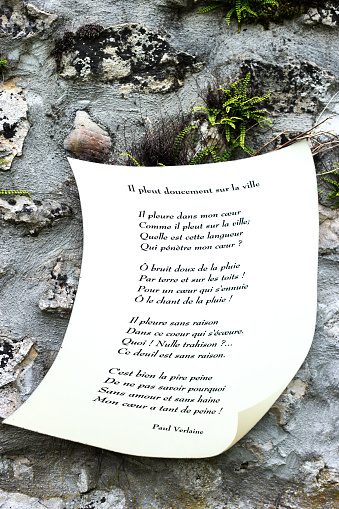 Il pleut doucement sur la ville
Il pleure dans mon cœur
Comme il pleut sur la ville;
Quelle est cette langueur
Qui pénètre mon cœur ?
Ô bruit doux de la pluie
Par terre et sur les toits !
Pour un cœur qui s'ennuie
Ô le chant de la pluie !
Il pleure sans raison
Dans ce coeur qui s'écœure.
Quoi ! Nulle trahison ?...
Ce deuil est sans raison.
C'est bien la pire peine
De ne pas savoir pourquoi
Sans amour et sans haine
Mon cœur a tant de peine !
Paul Verlaine